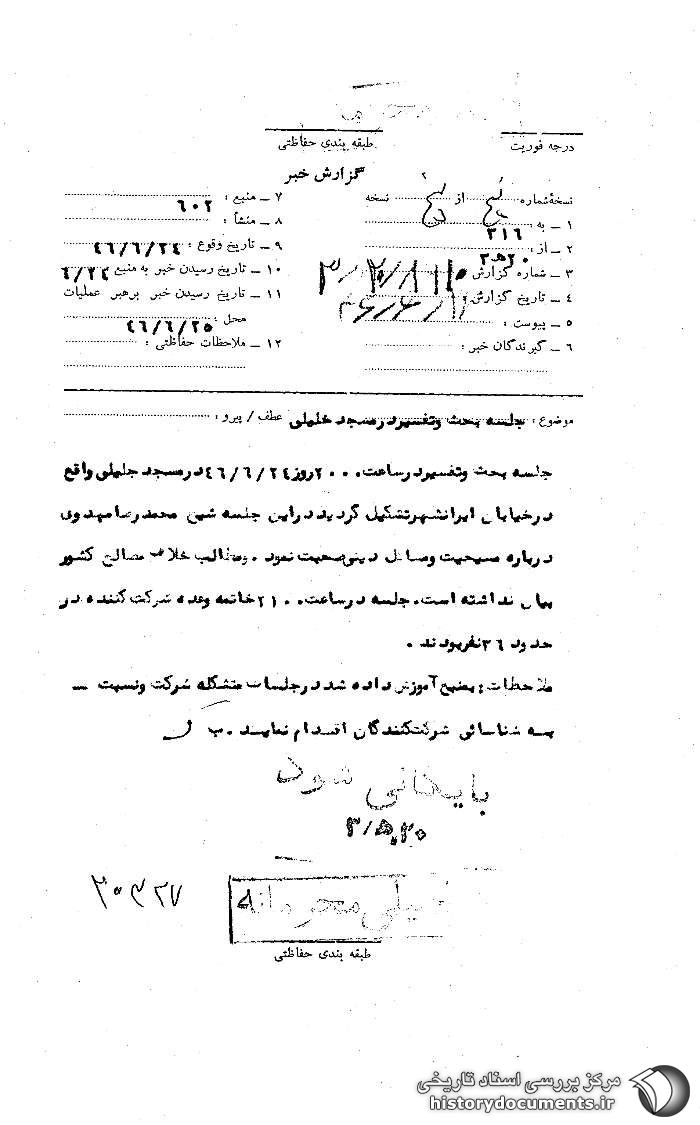 درجه فوریت
طبقه بندی حفاظتی
گزارش خبر
نسخهٔ شماره از ۲ نسخه
۱ ـ به : ۳۱۶
۲ ـ از : ۲۰ه۳
۳ ـ شماره گزارش
۴ ـ تاریخ گزارش
۵ ـ پیوست :
۶ ـ گیرندگان خبر :
۷ ـ منبع : ۶۰۲
۸ ـ منشأ :
۹ ـ تاریخ وقوع : ۴۶/۶/۲۴
۱۰ ـ تاریخ رسیدن خبر به منبع ۶/۲۴
۱۱ ـ تاریخ رسیدن خبر برهبر عملیات
محل : ۴۶/۶/۲۵
۱۲ ـ ملاحظات حفاظتی :
موضوع : جلسه بحث وتفسیردرمسجد جلیلی عطف / پیرو :
جلسه بحث وتفسیردرساعت ۲۰۰۰روز ۴۶/۶/۲۴درمسجد جلیلی واقع
درخیابان ایرانشهرتشکیل گردید دراین جلسه شیخ محمدرضامهدوی
درباره مسیحیت ومسائل دینی صحبت نمود . ومطالب خلاف مصالح کشور
بیان نداشته است. جلسه درساعت ۲۱۰۰خاتمه وعده شرکت کننده در
حدود ۳۶نفربودند .
ملاحظات : بمنبع آموزش داده شد درجلسات متشکله شرکت ونسبت ـ
به شناسائی شرکت‌کنندگان اقدام نماید .
بایگانی شود
۳/۵۲۰
۲۰۳۲۷
خیلی محرمانه
طبقه بندی حفاظتی
مرکز بررسی اسناد تاریخی
historydocuments.ir